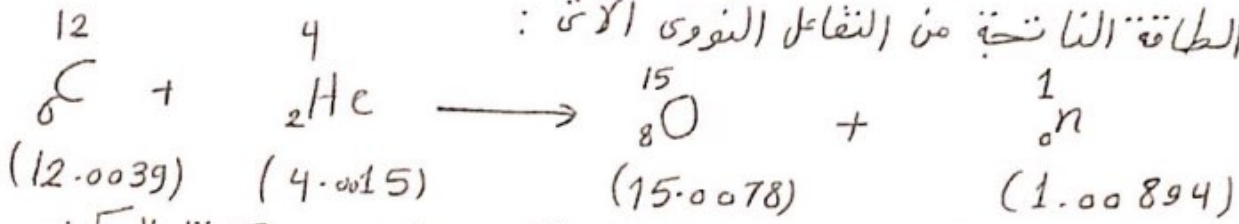 الطاقة الناتجة من التفاعل النووى الآتى :
12 4 15 1
6C + 2He → 8O + 0n
(12.0039) (4.0015) (15.0078) (1.00894)